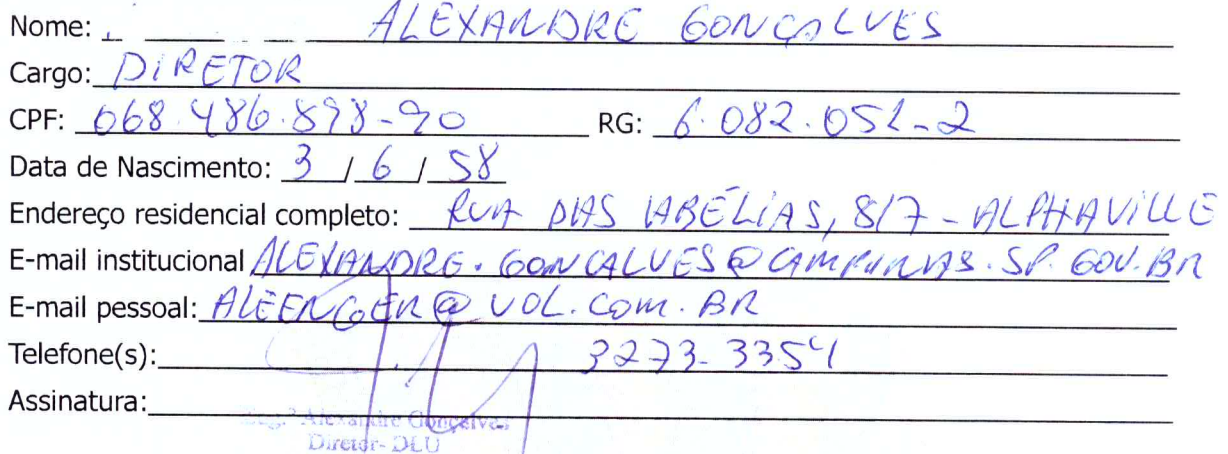 Nome: ALEXANDRE GONÇALVES
Cargo: DIRETOR
CPF: 068.486.898-90 RG: 6.082.051-2
Data de Nascimento: 3 / 6 / 58
Endereço residencial completo: RUA DAS ABÉLIAS, 817 - ALPHAVILLE
E-mail institucional ALEXANDRE.GONCALVES@CAMPINAS.SP.GOV.BR
E-mail pessoal: ALEENGER@UOL.COM.BR
Telefone(s): 3273-3354
Assinatura:
Eng.º Alexandre Gonçalves
Diretor-DLU